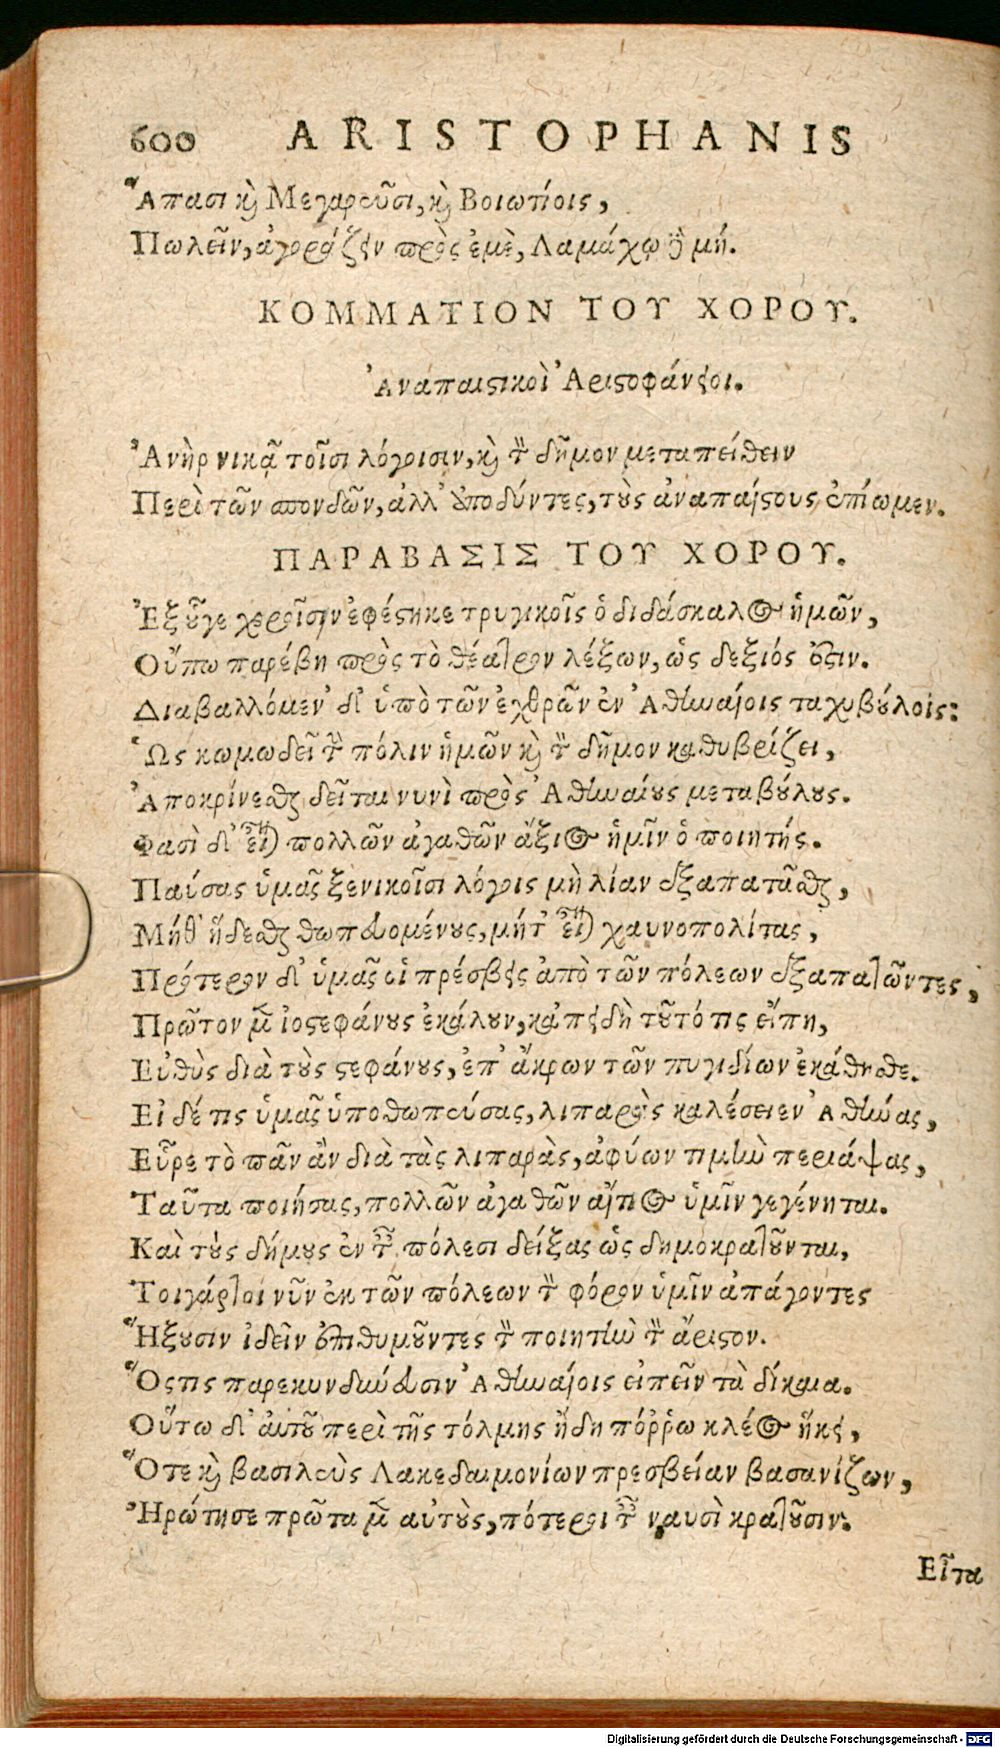 600 ARISTOPHANIS
Ἅπασι καὶ Μεγαρεῦσι, καὶ Βοιωτίοις,
Πωλεῖν, ἀγοράζειν πρὸς ἐμὲ, Λαμάχῳ δὲ μή.
ΚΟΜΜΑΤΙΟΝ ΤΟΥ ΧΟΡΟΥ.
Ἀναπαιστικοὶ Ἀριστοφάνειοι.
Ἀνὴρ νικᾷ τοῖσι λόγοισιν, καὶ τὸν δῆμον μεταπείθειν
Περὶ τῶν σπονδῶν, ἀλλ' ἀποδύντες, τοὺς ἀναπαίστους ἐπίωμεν.
ΠΑΡΑΒΑΣΙΣ ΤΟΥ ΧΟΡΟΥ.
Ἐξ οὗγε χοροῖσιν ἐφέστηκε τρυγικοῖς ὁ διδάσκαλος ἡμῶν,
Οὔπω παρέβη πρὸς τὸ θέατρον λέξων, ὡς δεξιός ἐστιν.
Διαβαλλόμεν' δ' ὑπὸ τῶν ἐχθρῶν ἐν Ἀθηναίοις ταχυβούλοις:
Ὡς κωμωδεῖ τὴν πόλιν ἡμῶν καὶ τὸν δῆμον καθυβρίζει,
Ἀποκρίνεσθαι δεῖται νυνὶ πρὸς Ἀθηναίους μεταβούλους.
Φασὶ δ' εἶναι πολλῶν ἀγαθῶν ἄξιος ἡμῖν ὁ ποιητής.
Παύσας ὑμᾶς ξενικοῖσι λόγοις μὴ λίαν ἐξαπατᾶσθαι,
Μήθ' ἥδεσθαι θωπευομένους, μήτ' εἶναι χαυνοπολίτας,
Πρότερον δ' ὑμᾶς οἱ πρέσβεις ἀπὸ τῶν πόλεων ἐξαπατῶντες,
Πρῶτον μὲν ἰοστεφάνους ἐκάλουν, κἀπειδὴ τοῦτό τις εἴπη,
Εὐθὺς διὰ τοὺς στεφάνους, ἐπ' ἄκρων τῶν πυγιδίων ἐκάθησθε.
Εἰ δέ τις ὑμᾶς ὑποθωπεύσας, λιπαρὰς καλέσειεν Ἀθήνας,
Εὗρε τὸ πᾶν ἂν διὰ τὰς λιπαρὰς, ἀφύων τιμὴν περιάψας,
Ταῦτα ποιήσας, πολλῶν ἀγαθῶν αἴτιος ὑμῖν γεγένηται.
Καὶ τοὺς δήμους ἐν ταῖς πόλεσι δείξας ὡς δημοκρατοῦνται,
Τοιγάρτοι νῦν ἐκ τῶν πόλεων τὸν φόρον ὑμῖν ἀπάγοντες
Ἥξουσιν ἰδεῖν ἐπιθυμοῦντες τὸν ποιητὴν τὸν ἄριστον.
Ὅστις παρεκινδύνευσιν Ἀθηναίοις εἰπεῖν τὰ δίκαια.
Οὕτω δ' αὐτοῦ περὶ τῆς τόλμης ἤδη πόῤῥω κλέος ἥκει,
Ὅτε καὶ βασιλεὺς Λακεδαιμονίων πρεσβείαν βασανίζων,
Ἠρώτησε πρῶτα μὲν αὐτοὺς, πότεροι ταῖς ναυσὶ κρατοῦσιν.
Εἶτα
Digitalisierung gefördert durch die Deutsche Forschungsgemeinschaft - DFG